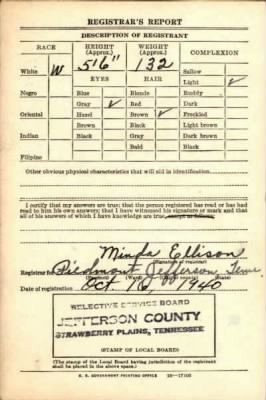 REGISTRAR'S REPORT
DESCRIPTION OF REGISTRANT
RACE HEIGHT (Approx.) WEIGHT (Approx.) COMPLEXION
White W 5'6" 132 Sallow
EYES HAIR Light ✓
Negro Blue Blonde Ruddy
Gray ✓ Red Dark
Oriental Hazel Brown ✓ Freckled
Brown Black Light brown
Indian Black Gray Dark brown
Bald Black
Filipino
Other obvious physical characteristics that will aid in identification
I certify that my answers are true; that the person registered has read or has had
read to him his own answers; that I have witnessed his signature or mark and that
all of his answers of which I have knowledge are true, except as follows:
Minda Ellison
(Signature of registrar)
Registrar for Piedmont Jefferson Tenn
Date of registration Oct 16, 1940
SELECTIVE SERVICE BOARD
JEFFERSON COUNTY
STRAWBERRY PLAINS, TENNESSEE
(STAMP OF LOCAL BOARD)
(The stamp of the Local Board having jurisdiction of the registrant
shall be placed in the above space.)
U. S. GOVERNMENT PRINTING OFFICE 16—17105